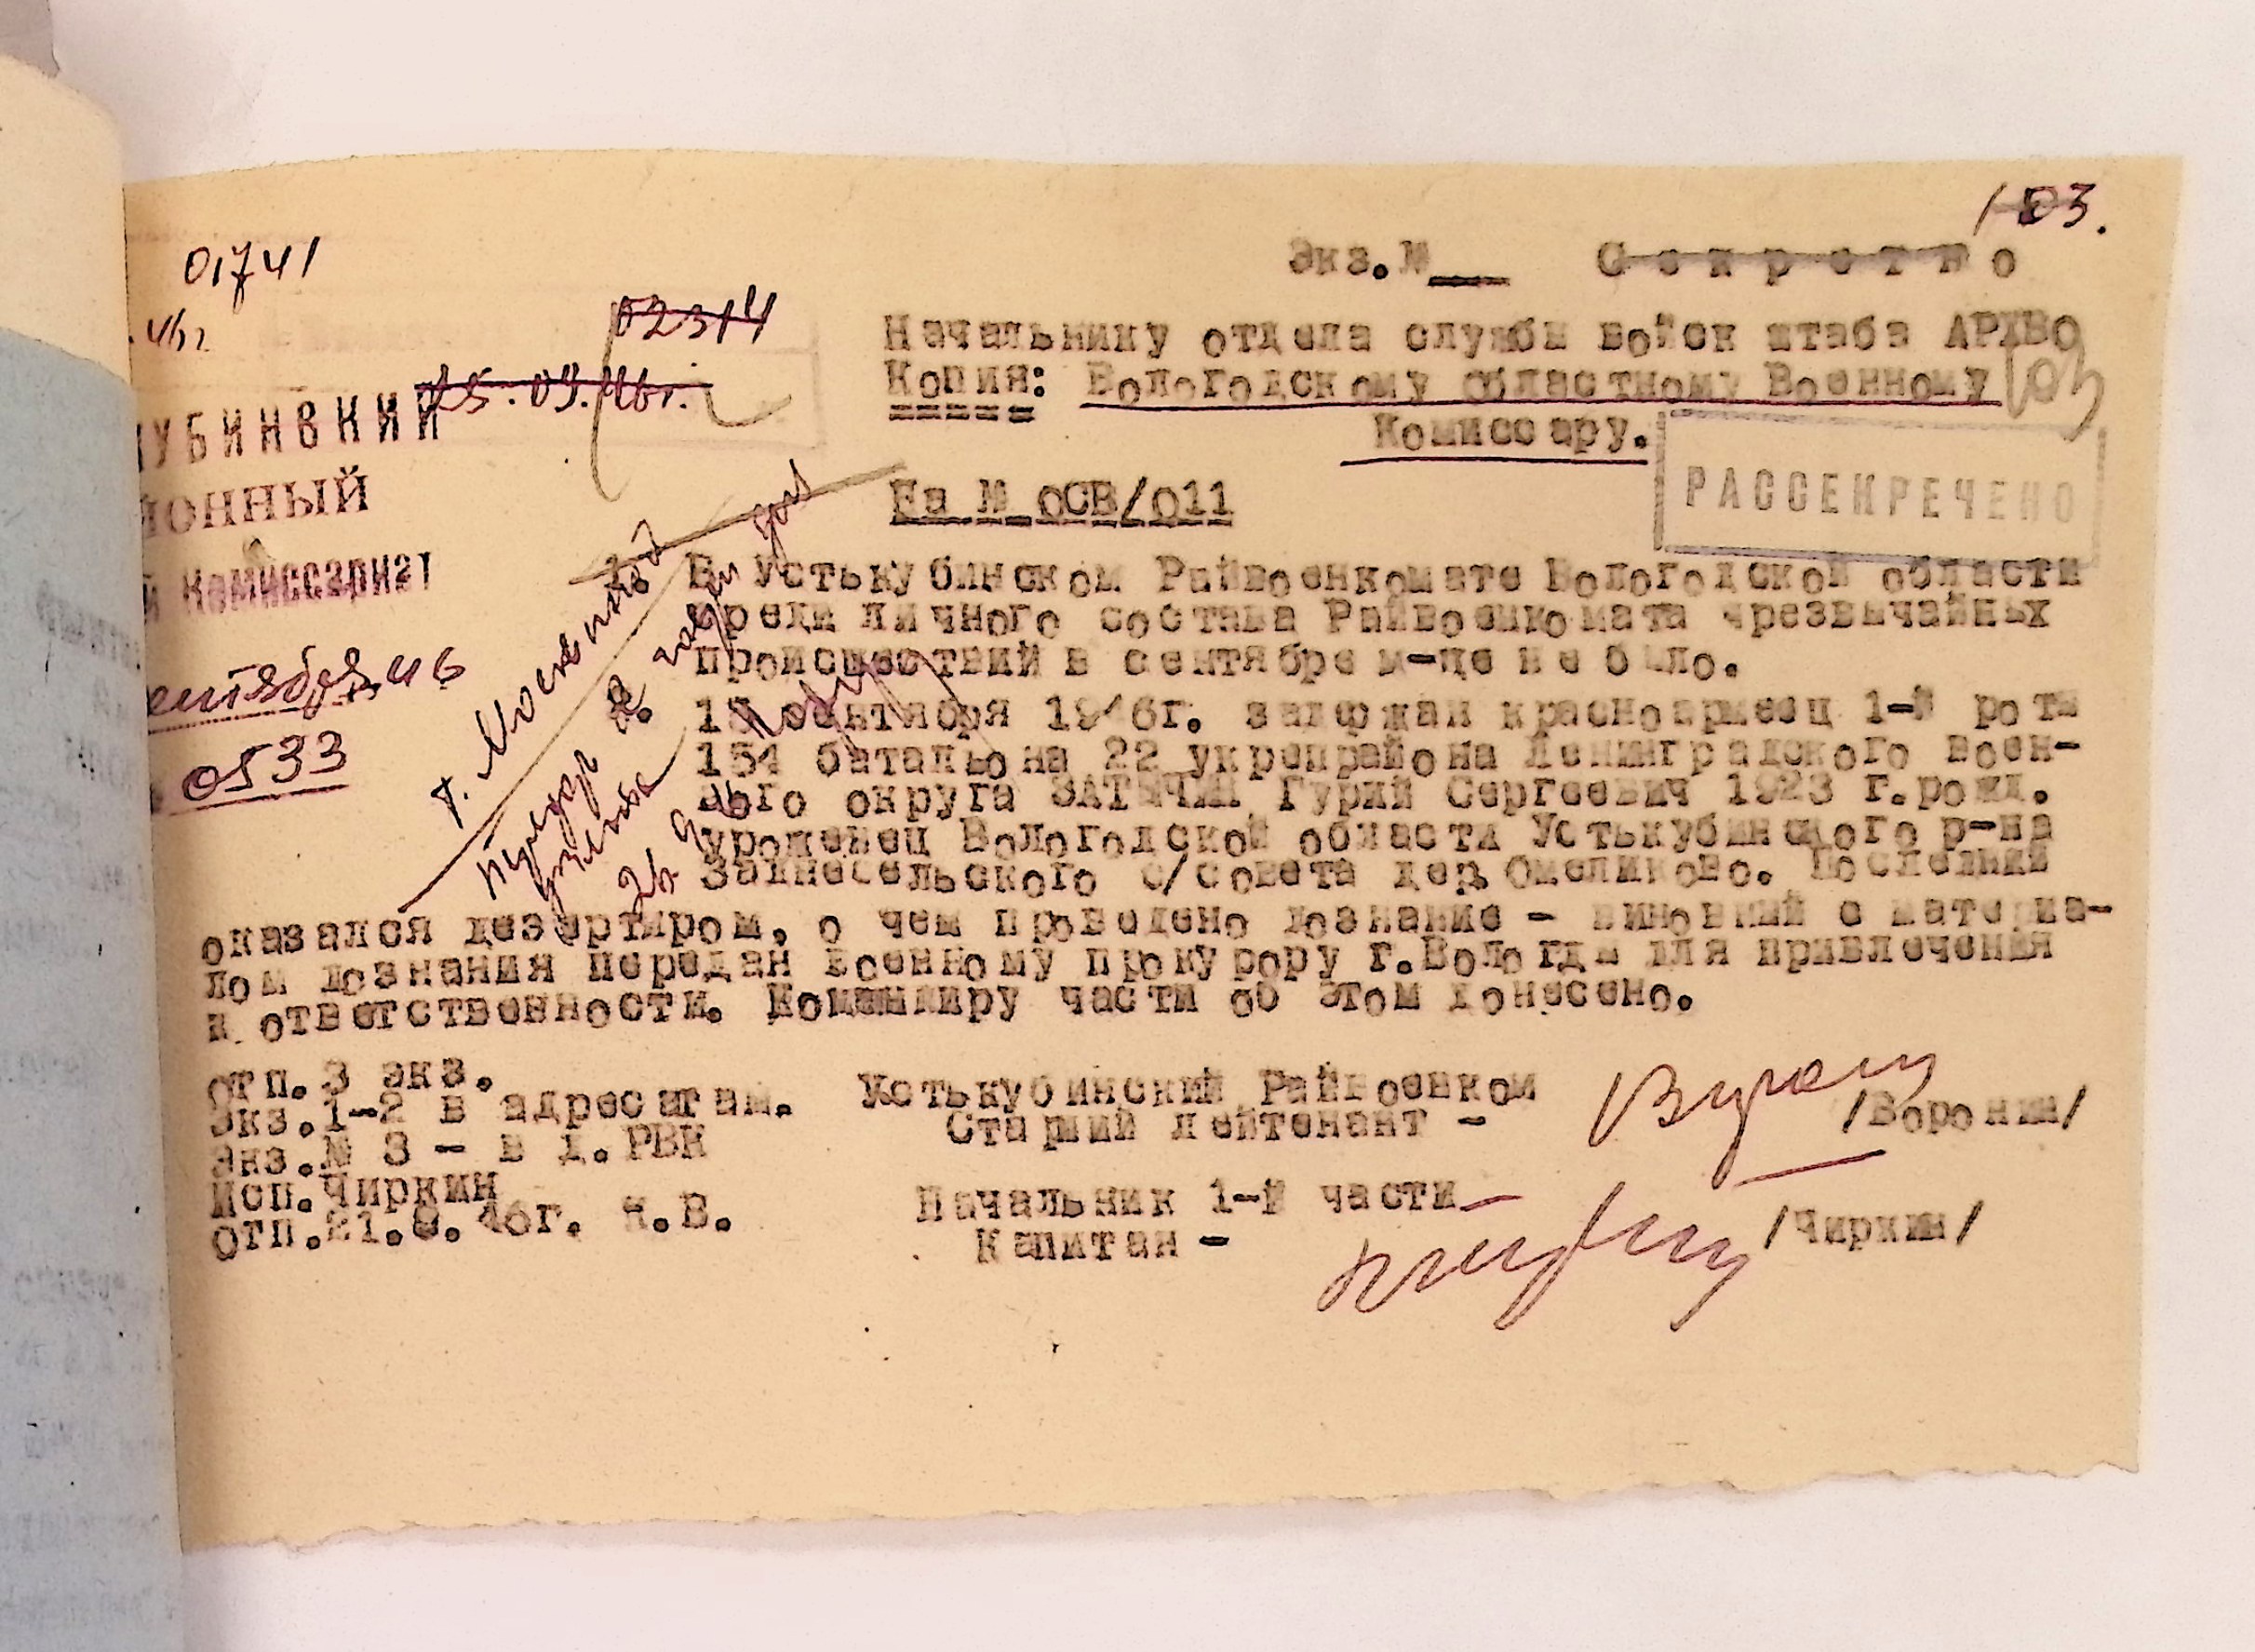 103.
01741
46г
Экз.№___ Секретно
02314
25.09.46г.
Начальнику отдела службы войск штаба АРХВО
103
Копия: Вологодскому областному Военному
Комиссару.
УБИНВКИЙ
ОННЫЙ
й Комиссариат
РАССЕКРЕЧЕНО
На №_оСВ/о11
ентября 46
0533
В Устькубинском Райвоенкомате Вологодской области
среди личного состава Райвоенкомата чрезвычайных
происшествий в сентябре м-це не было.
сентября 1946г. задержан красноармеец 1-й роты
154 батальона 22 укрепрайона Ленинградского воен-
ного округа ЗАТЫЧИН Гурий Сергеевич 1923 г.рожд.
уроженец Вологодской области Устькубинского р-на
Заднесельского с/совета дер. Омеликово. Последний
оказался дезертиром, о чем проведено дознание - виновный с материа-
лом дознания передан военному прокурору г.Вологды для привлечения
к ответственности. Командиру части об этом донесено.
26 9
отп.3 экз.
Экз.1-2 в адресатам.
Экз.№ 3 - в д.РВК
Исп.Чиркин
отп.21.9.46г. К.В.
Устькубинский Райвоенком
Старший лейтенант - /Воронин/
Начальник 1-й части
Капитан - /Чиркин/